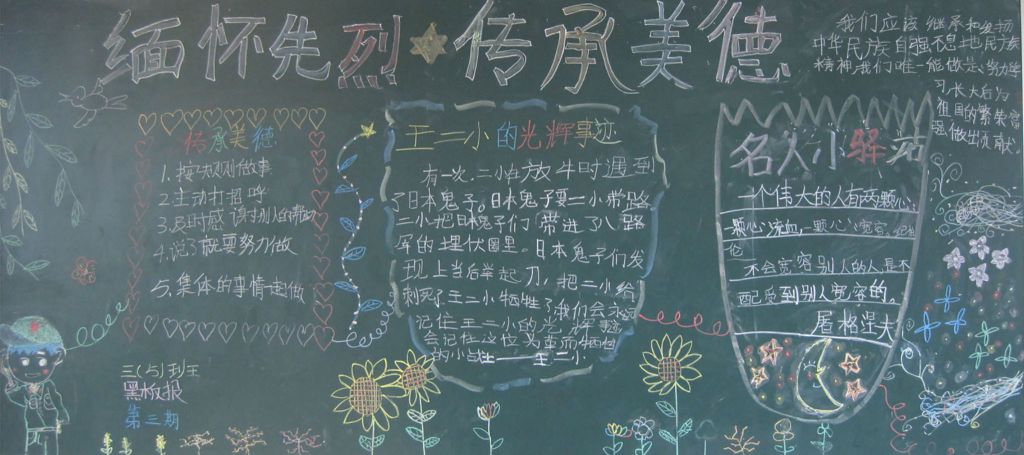 缅怀先烈★传承美德
我们应该继承和发扬
中华民族自强不息地民族
精神,我们唯一能做是努力学
习,长大后为
祖国的繁荣富
强做出贡献
传承美德
1.按规则做事
2.主动打招呼
3.及时感谢别人的帮助
4.说了就要努力做
5.集体的事情一起做
王二小的光辉事迹
有一次,二小在放牛时遇到
了日本鬼子。日本鬼子要二小带路
二小把日本鬼子们带进了八路
军的埋伏圈里。日本鬼子们发
现上当后举起刀,把二小给
刺死了王二小牺牲了我们会永远
记住王二小的光辉事迹
会记住这位英勇而牺牲
的小战士——王二小
名人小驿站
一个伟大的人有两颗心:
一颗心流血,一颗心宽容。
不会宽容别人的人是不
配受到别人宽容的。
屠格涅夫
三(5)班
黑板报
第三期